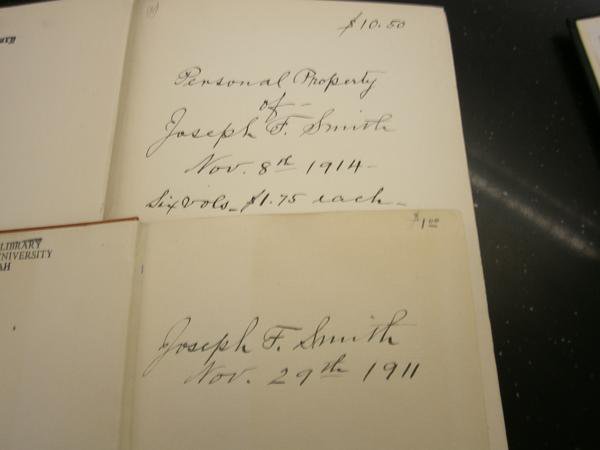 $10.50
Personal Property
of –
Joseph F. Smith
Nov. 8th 1914 –
Six vols – $1.75 each –
LIBRARY
$1.00
Joseph F. Smith
Nov. 29th 1911